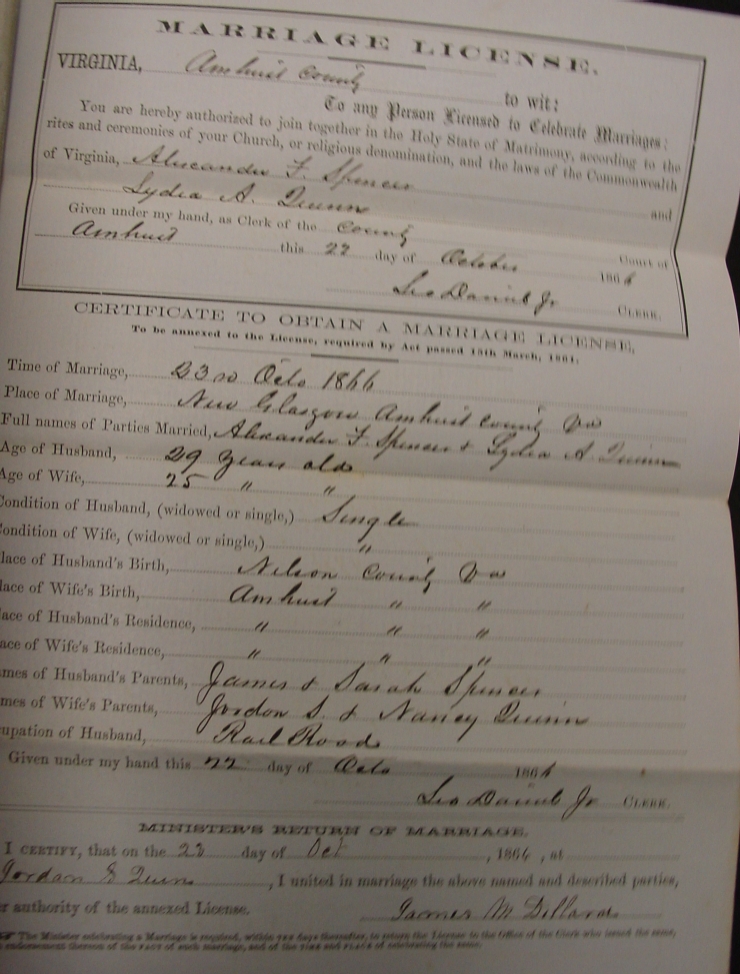 MARRIAGE LICENSE.
VIRGINIA, Amherst County to wit:
To any Person Licensed to Celebrate Marriages:
You are hereby authorized to join together in the Holy State of Matrimony, according to the
rites and ceremonies of your Church, or religious denomination, and the laws of the Commonwealth
of Virginia, Alexander F. Spencer
and
Lydia A. Quinn
Given under my hand, as Clerk of the County Court of
Amherst this 22 day of October 1866
Leo Daniel Jr CLERK.
CERTIFICATE TO OBTAIN A MARRIAGE LICENSE,
To be annexed to the License, required by Act passed 15th March, 1861.
Time of Marriage, 23rd Octo 1866
Place of Marriage, New Glasgow Amherst County Va
Full names of Parties Married, Alexander F. Spencer & Lydia A. Quinn
Age of Husband, 29 years old
Age of Wife, 25 " "
Condition of Husband, (widowed or single,) Single
Condition of Wife, (widowed or single,) "
lace of Husband's Birth, Nelson County Va
lace of Wife's Birth, Amherst " "
lace of Husband's Residence, " " "
ace of Wife's Residence, " " "
mes of Husband's Parents, James & Sarah Spencer
mes of Wife's Parents, Jordon S. & Nancy Quinn
upation of Husband, Rail Road
Given under my hand this 22 day of Octo 1866
Leo Daniel Jr CLERK.
MINISTER'S RETURN OF MARRIAGE.
I CERTIFY, that on the 23 day of Oct, 1866, at
Jordan S Quinn, I united in marriage the above named and described parties,
r authority of the annexed License.
James M Dillard
The Minister celebrating a Marriage is required, within TEN days thereafter, to return the License to the Office of the Clerk who issued the same,
endorsement thereon of the FACT of such marriage, and of the TIME and PLACE of celebrating the same.